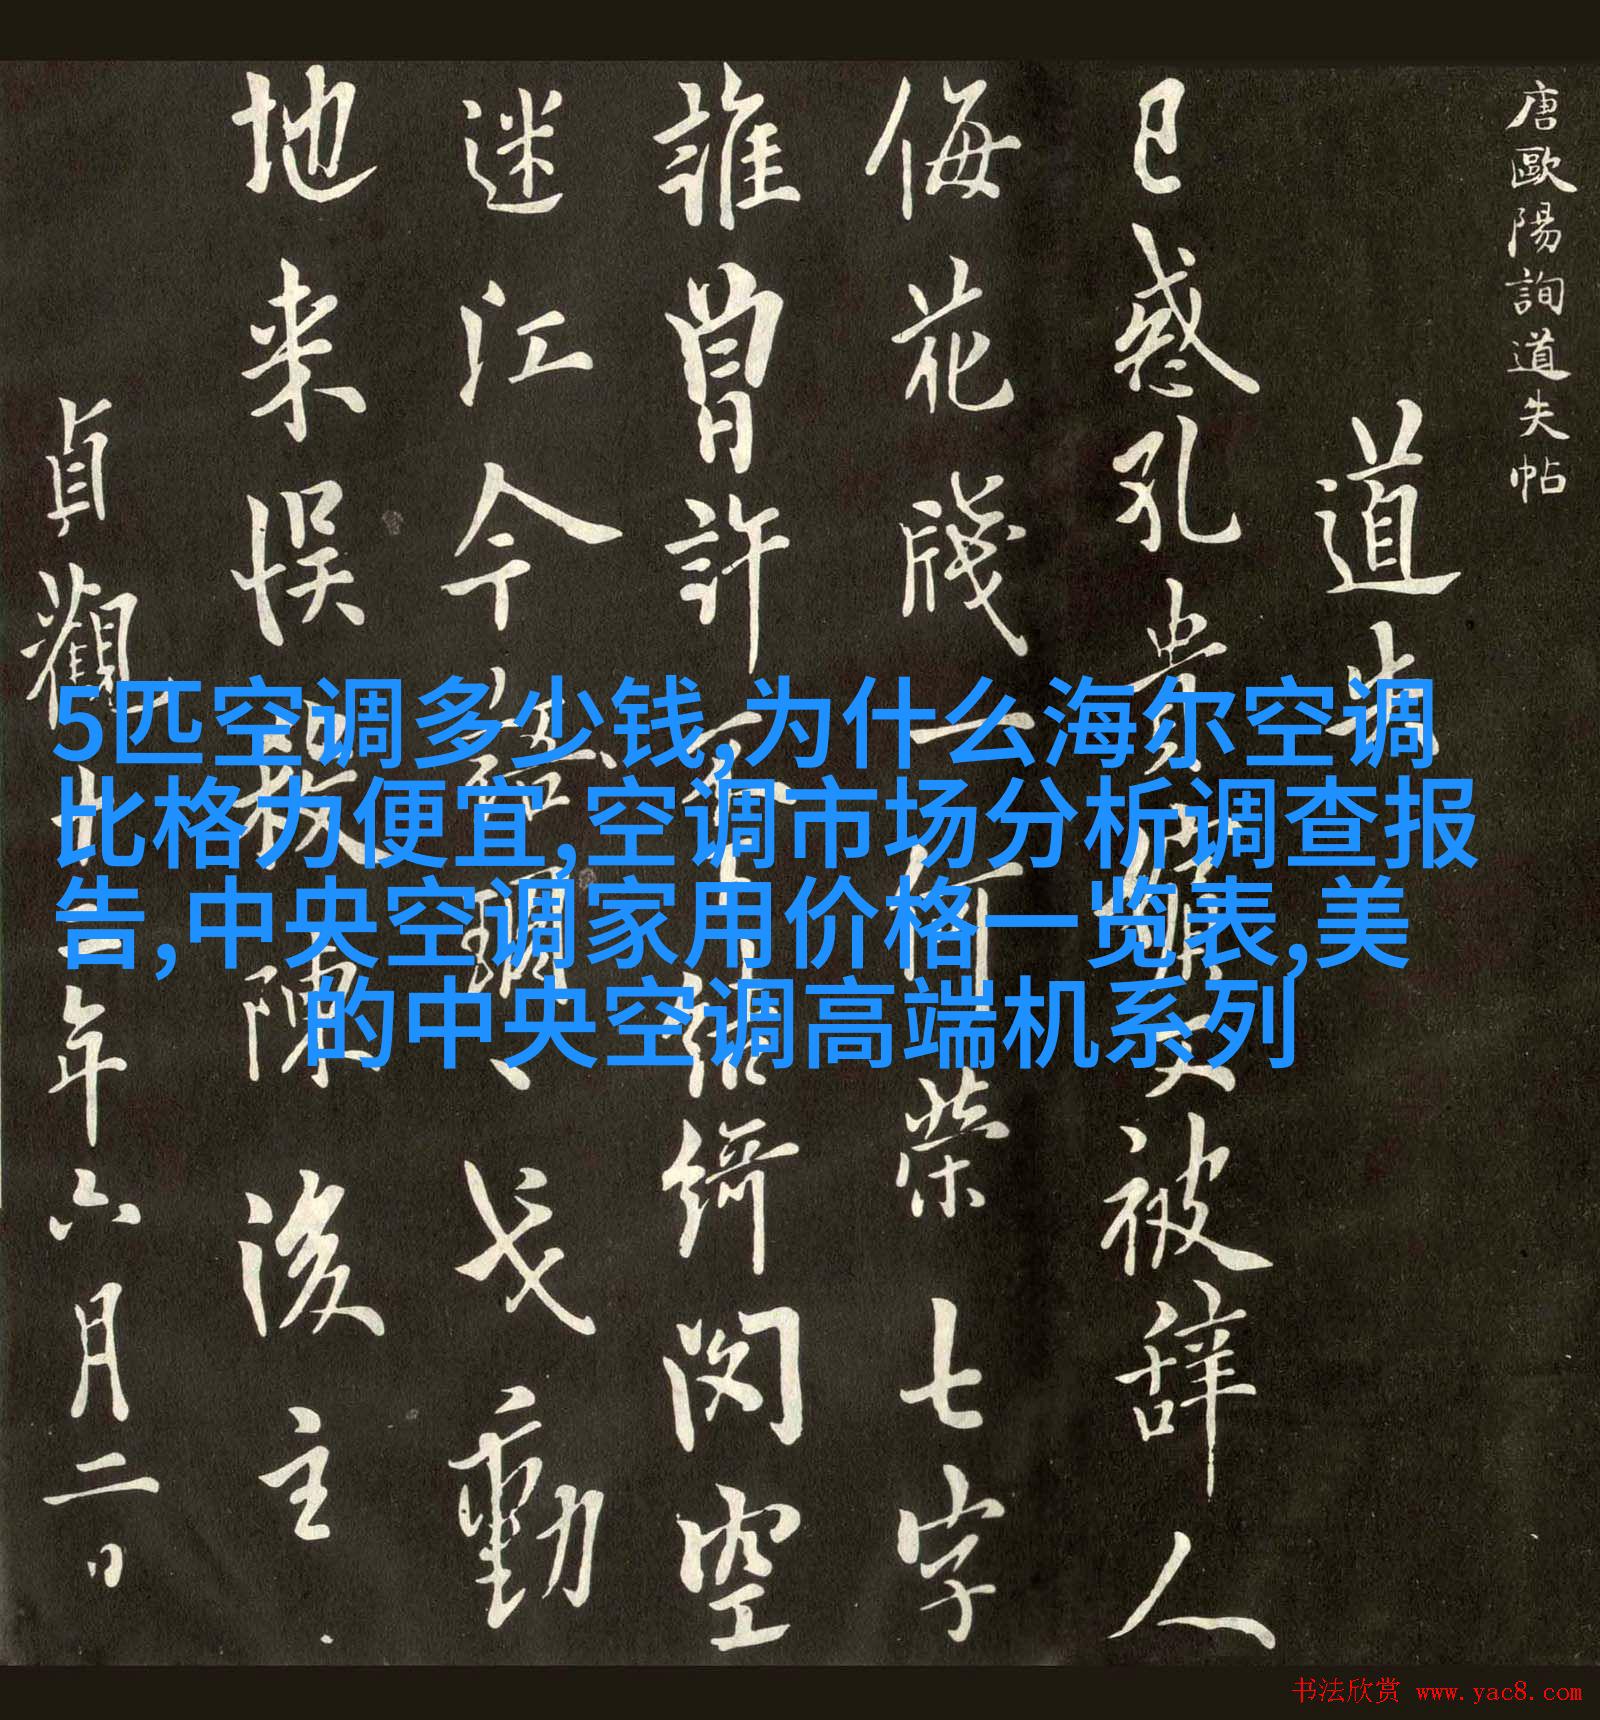 唐歐陽詢道失帖
道失
已惑孔貴嬪又被辭人
侮花牋一何榮七字
誰曾許
結綺閣空
迷江今
弋動
地来悮
陳後主
貞觀
年六月二日
5匹空调多少钱,为什么海尔空调
比格力便宜,空调市场分析调查报
告,中央空调家用价格一览表,美
的中央空调高端机系列
书法欣赏 www.yac8.com